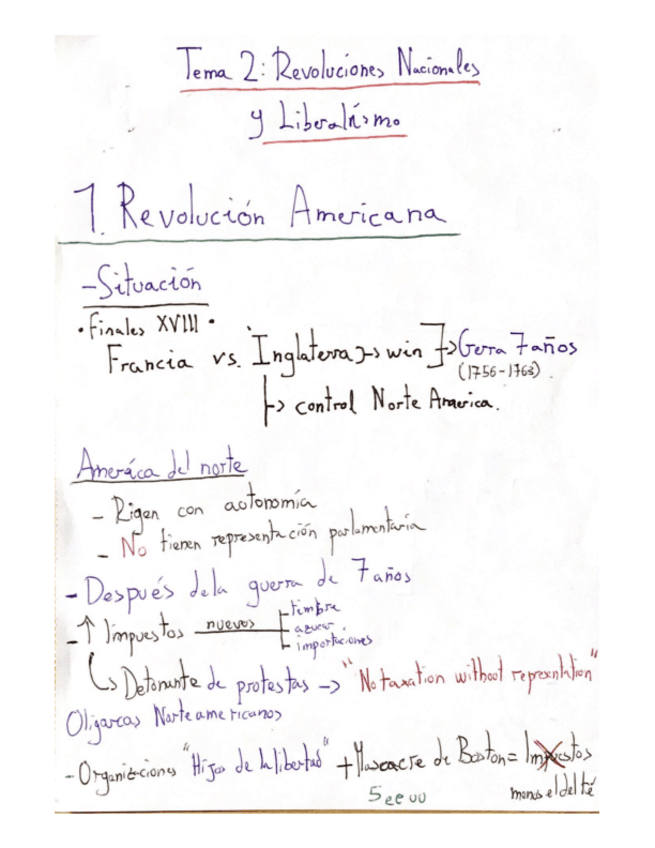 Tema 2: Revoluciones Nacionales
y Liberalismo
1. Revolución Americana
- Situación
• finales XVIII •
Francia vs. Inglaterra → win ] → Gerra 7 años
(1756-1763).
↳ control Norte America.
América del norte
- Rigen con autonomía
- No tienen representación parlamentaria
- Después de la guerra de 7 años
- ↑ Impuestos nuevos timbre
azucar
importaciones
↳ Detonante de protestas → "No taxation without representation"
Oligarcas Norteamericanos
- Organizaciones "Hijos de la libertad" + Mascacre de Boston = Impuestos
5 ee uu menos el del té